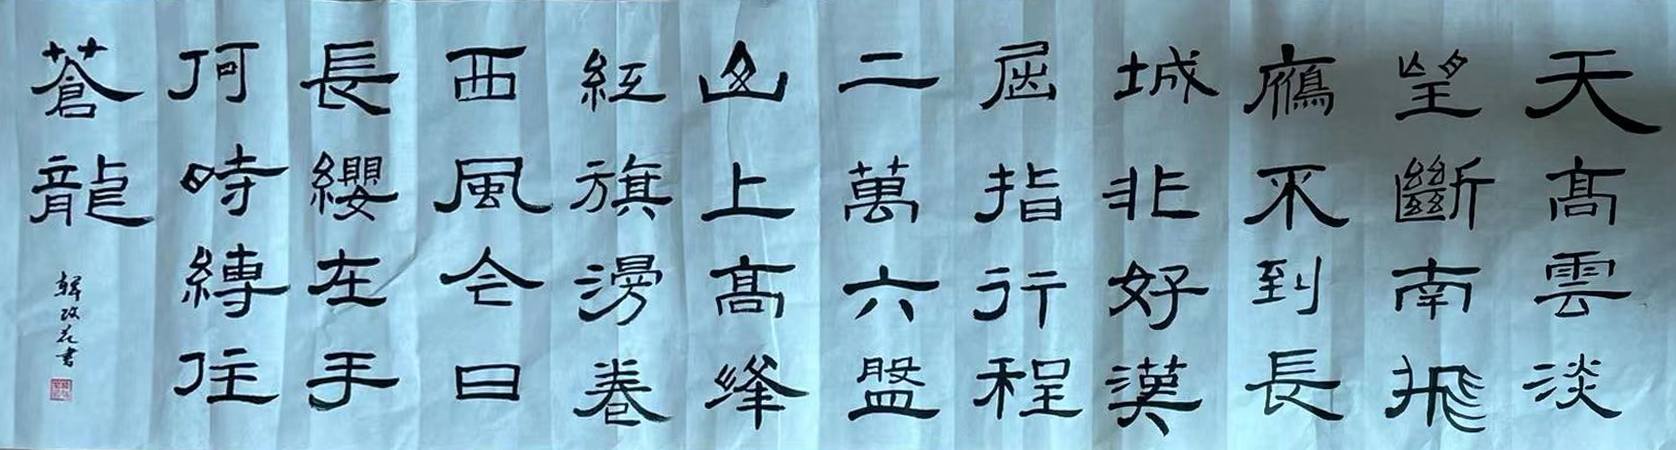 天髙雲淡
望斷南飛
鴈不到長
城非好漢
屈指行程
二萬六盤
山上髙峰
紅旗漫卷
西風今日
長纓在手
何時縛住
蒼龍
韓改花書